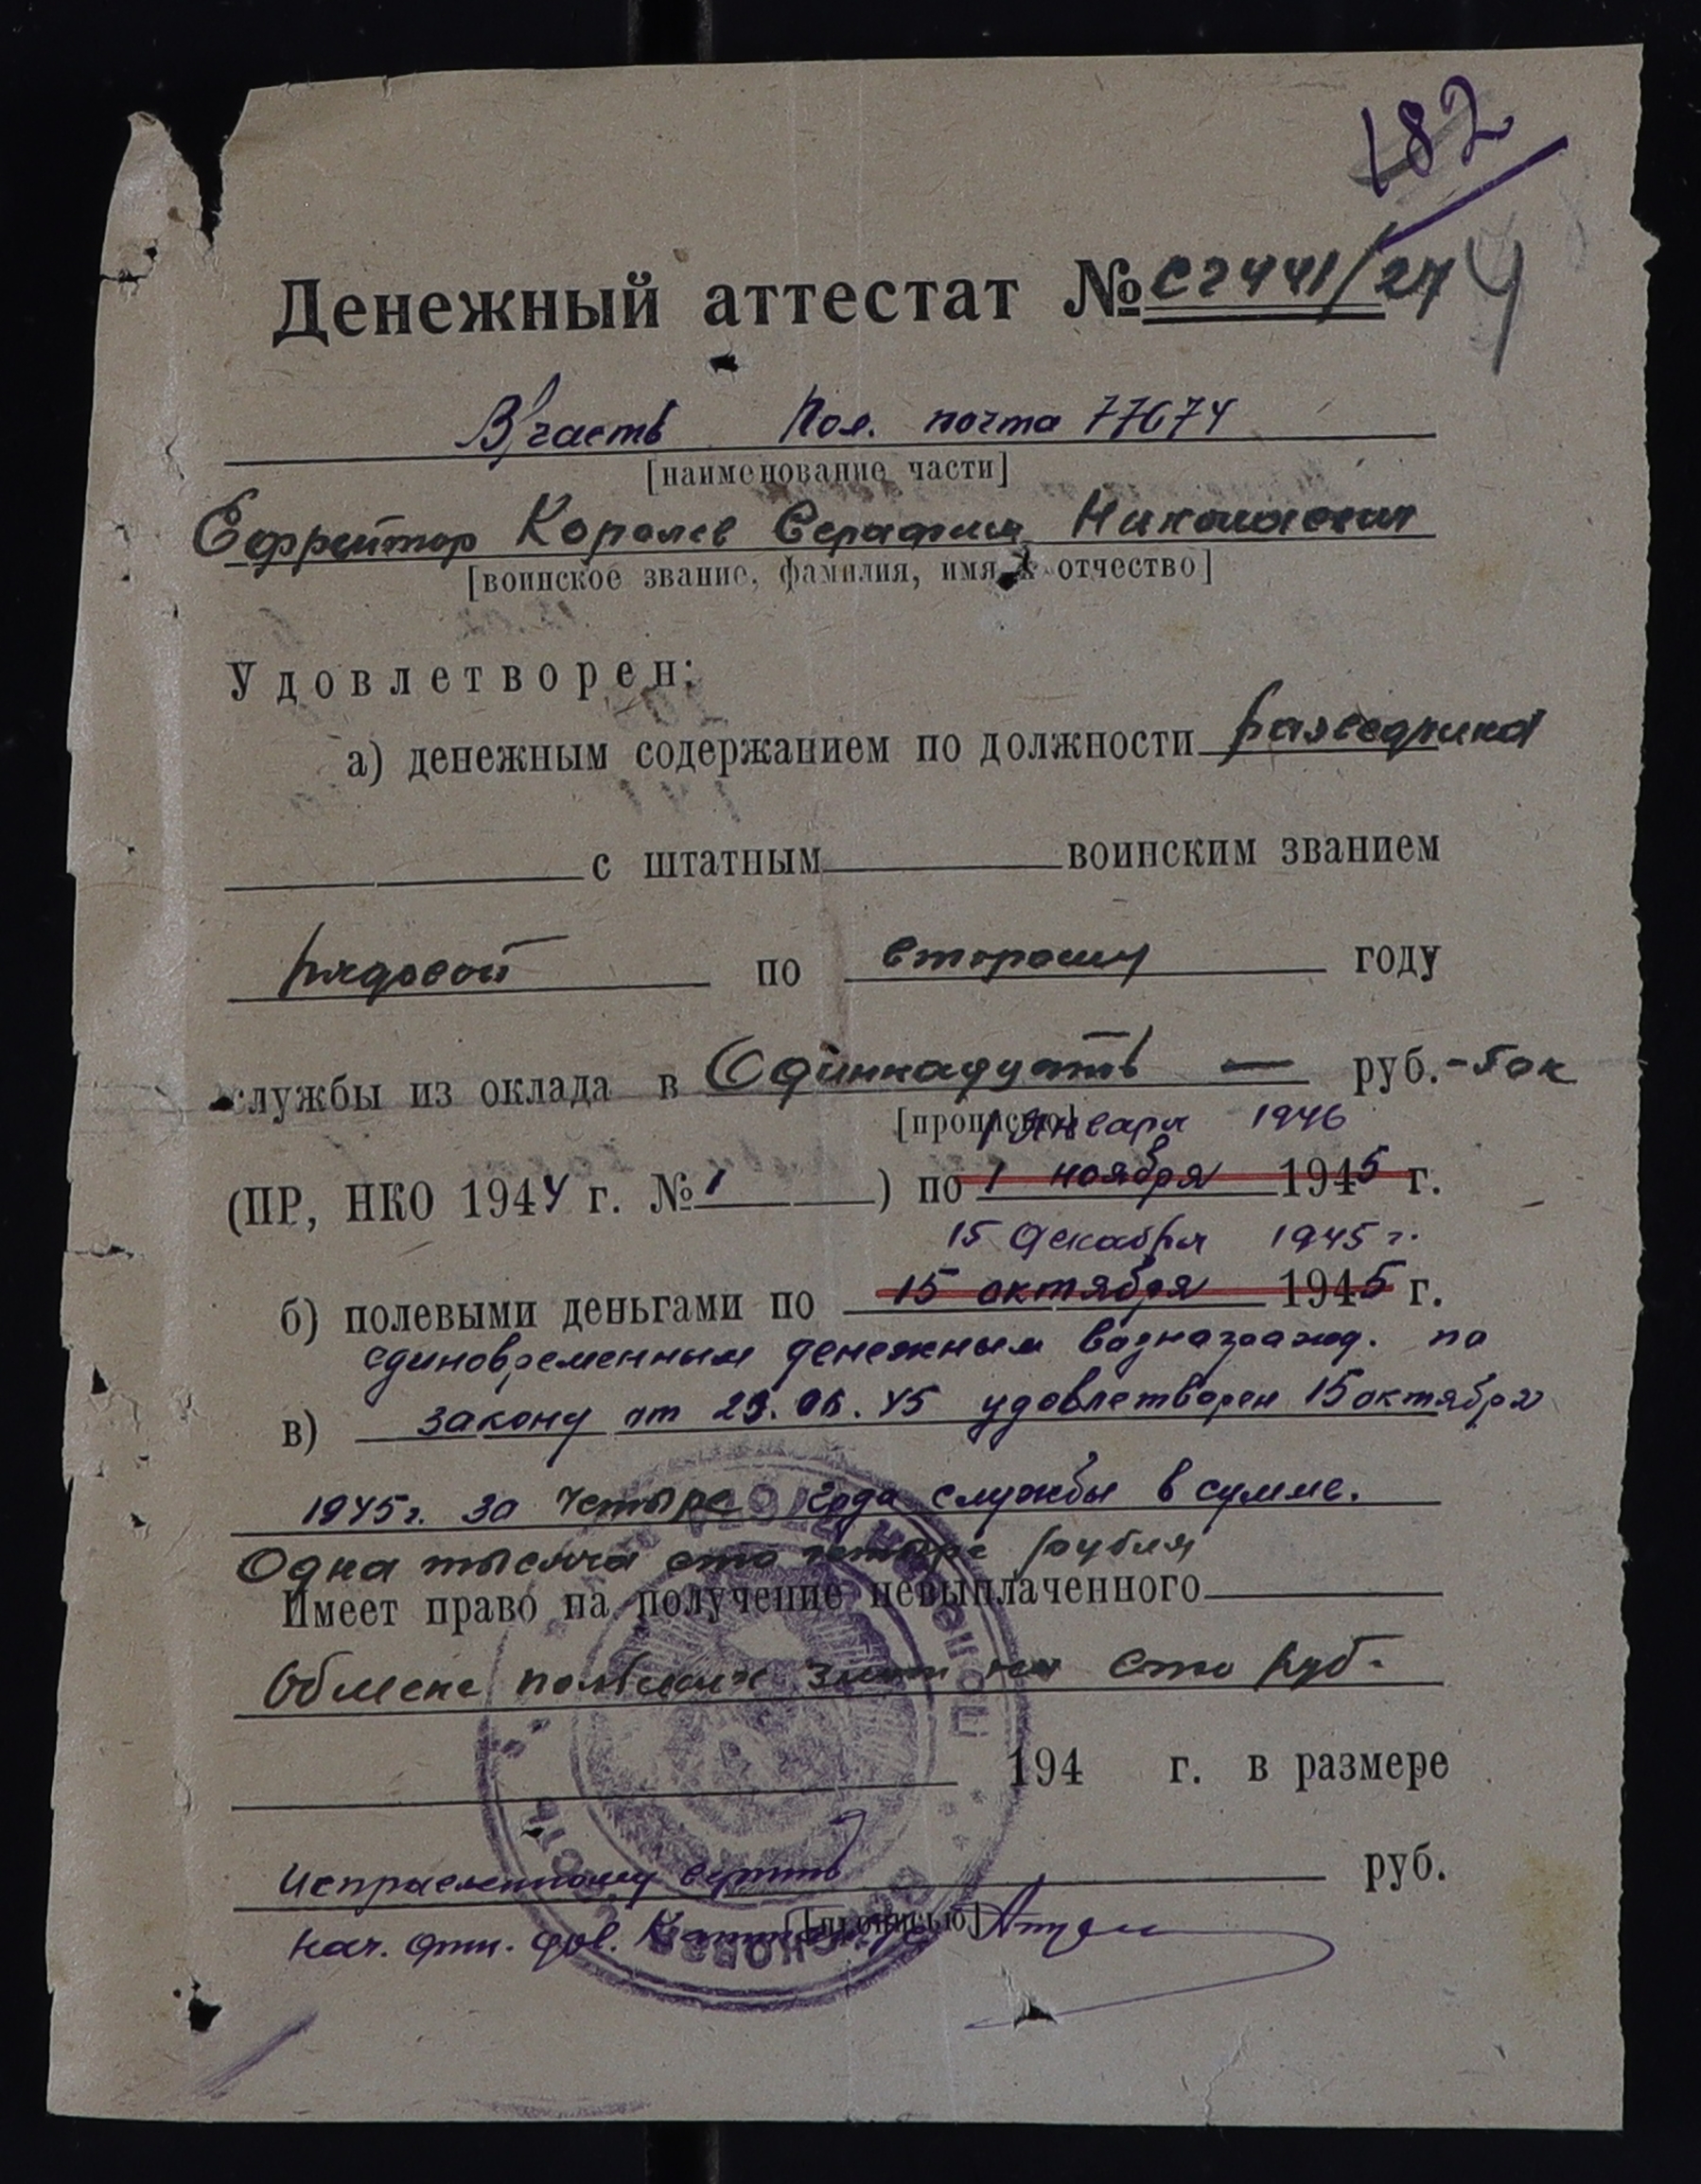 182
Денежный аттестат № С2441/24 4
В/часть Пол. почта 77674
[наименование части]
Ефрейтор Королев Серафим Николаевич
[воинское звание, фамилия, имя и отчество]
Удовлетворен:
а) денежным содержанием по должности разведчика
с штатным воинским званием
рядовой по второму году
службы из оклада в Одиннадцать — руб. -50к
[прописью] 1 января 1946
(ПР, НКО 1944 г. № 1 ) по 1 ноября 1945 г.
15 декабря 1945 г.
б) полевыми деньгами по 15 октября 1945 г.
единовременным денежным вознагражд. по
в) закону от 23.06.45 удовлетворен 15 октября
1945 г. за четыре года службы в сумме.
Одна тысяча сто четыре рубля
Имеет право на получение невыплаченного
Обмена на сто руб.
194 г. в размере
руб.
[прописью]
нач. фин. дов.